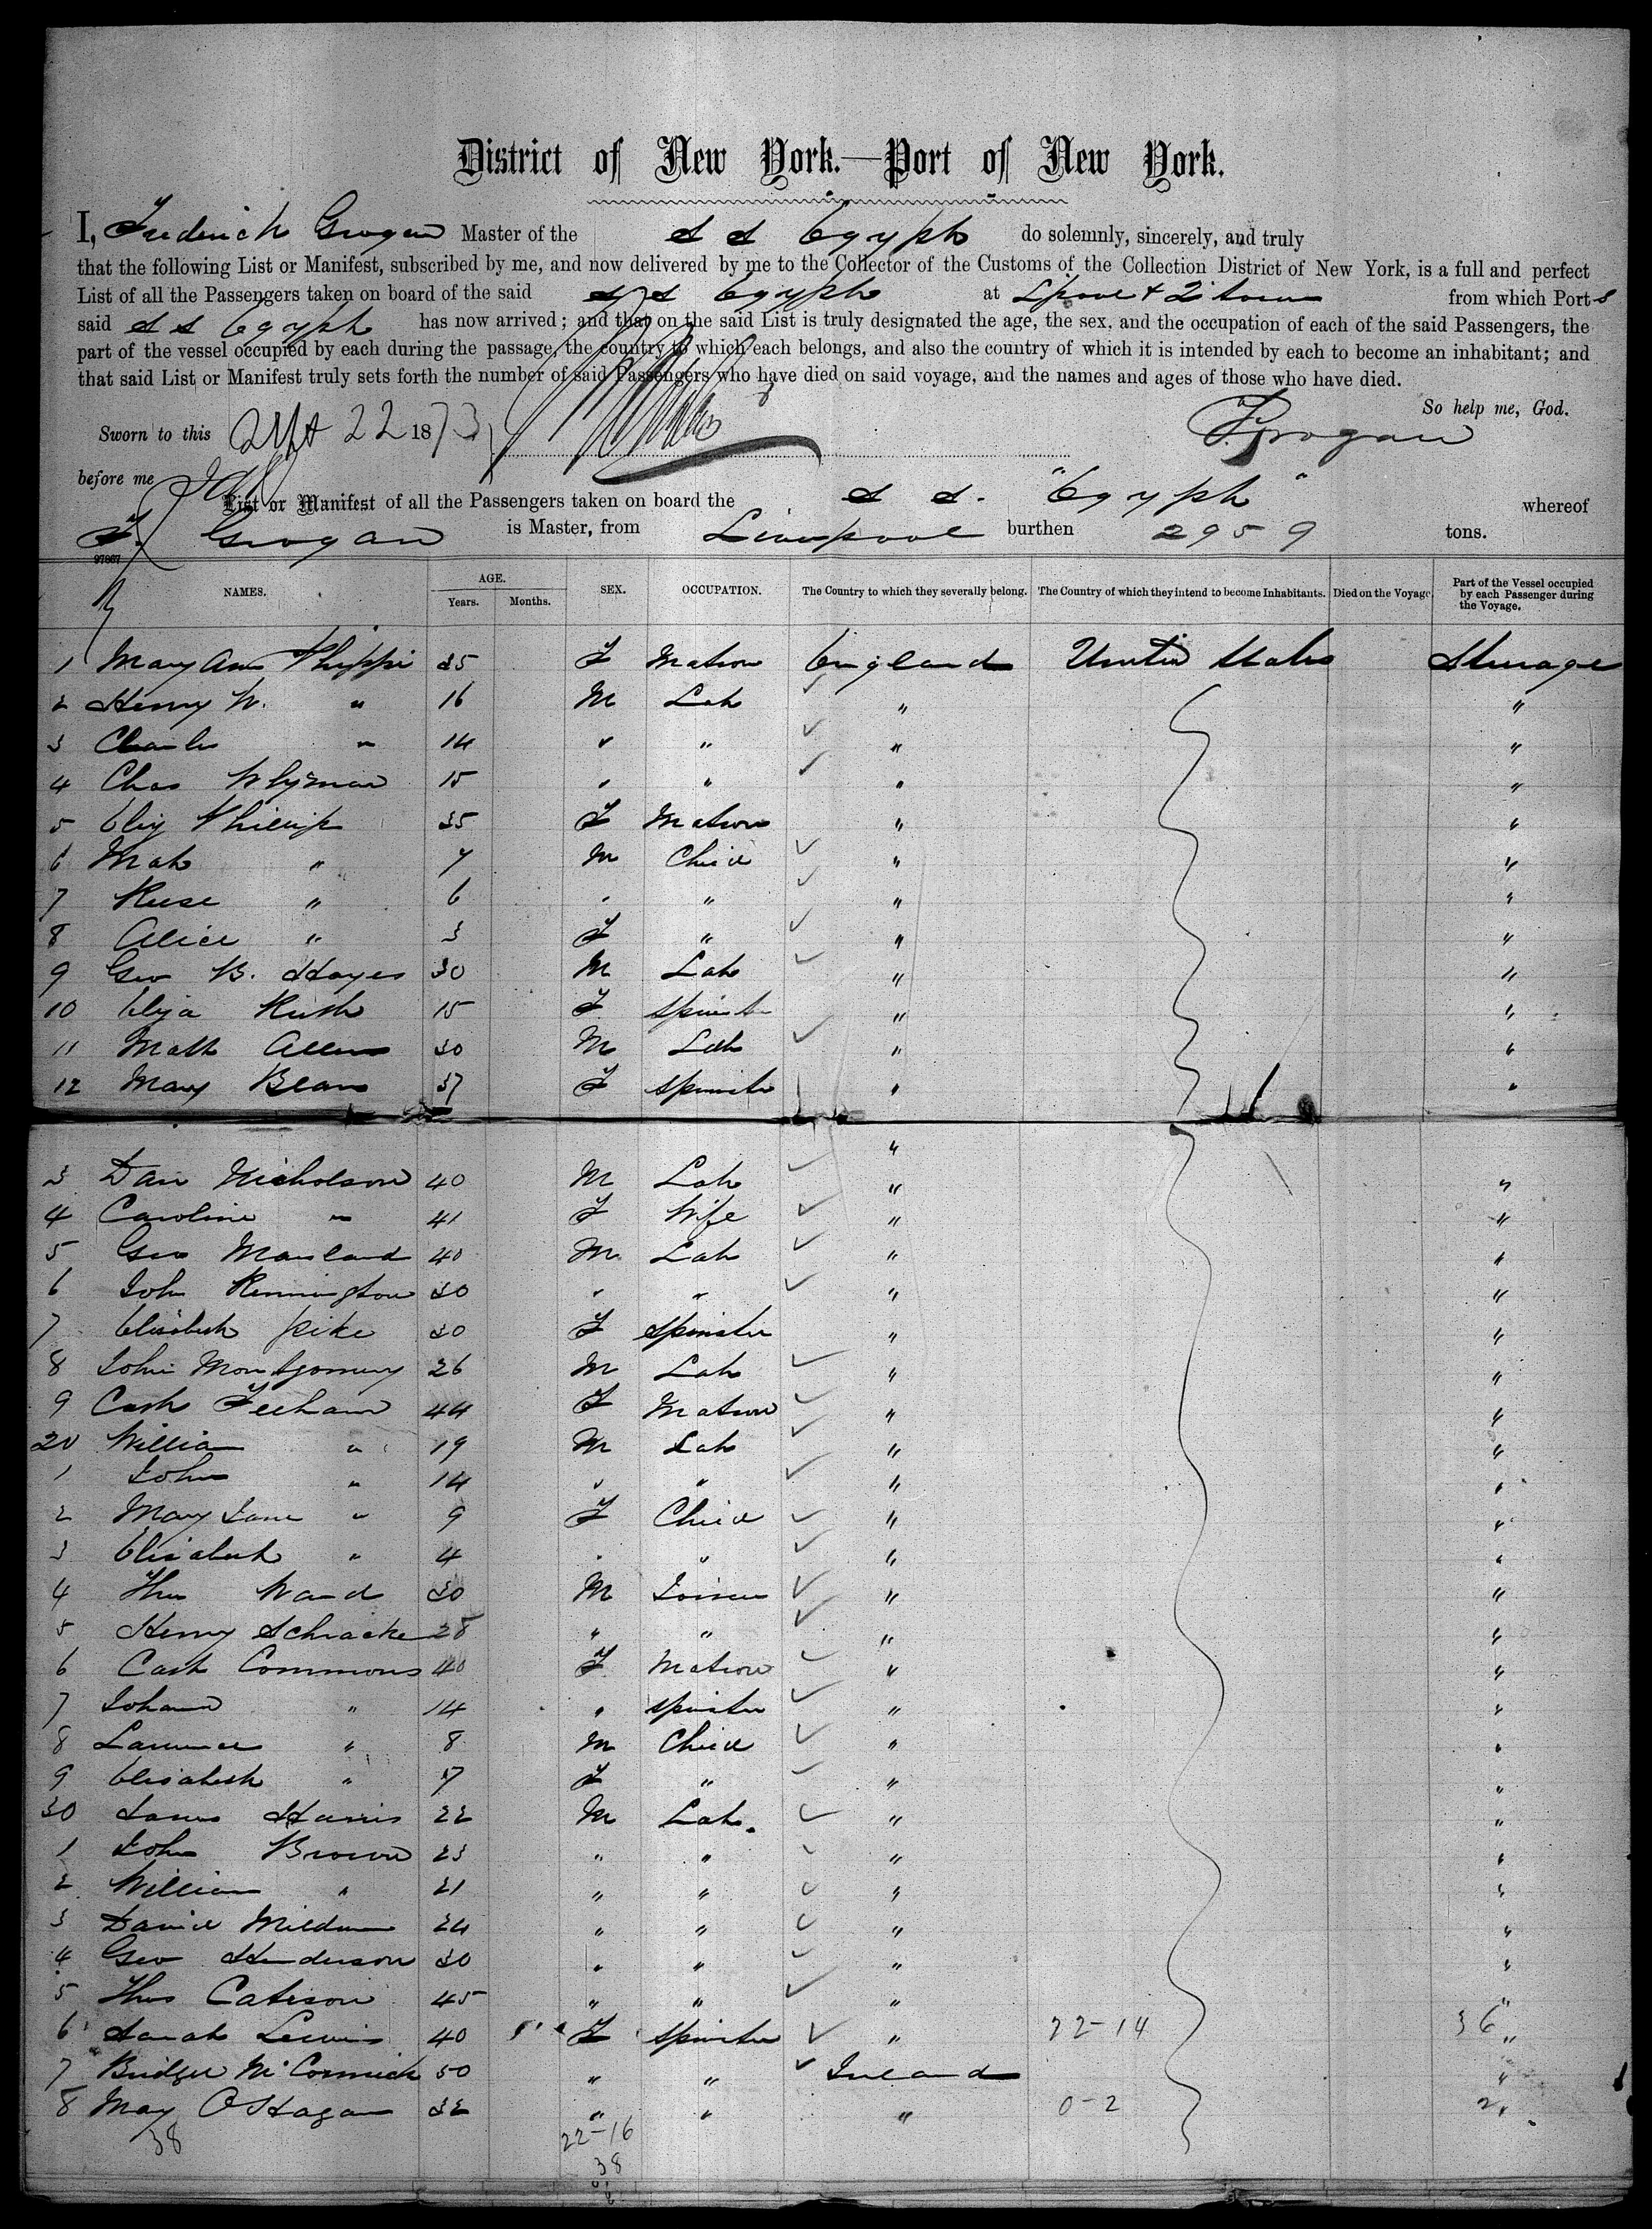 District of New York.—Port of New York.
I, Frederick Grogan Master of the S S Egypt do solemnly, sincerely, and truly
that the following List or Manifest, subscribed by me, and now delivered by me to the Collector of the Customs of the Collection District of New York, is a full and perfect
List of all the Passengers taken on board of the said S S Egypt at Lpool & Qtown from which Ports
said S S Egypt has now arrived; and that on the said List is truly designated the age, the sex, and the occupation of each of the said Passengers, the
part of the vessel occupied by each during the passage, the country to which each belongs, and also the country of which it is intended by each to become an inhabitant; and
that said List or Manifest truly sets forth the number of said Passengers who have died on said voyage, and the names and ages of those who have died.
So help me, God.
Sworn to this Sept 22 1873 F Grogan
before me
List or Manifest of all the Passengers taken on board the S S. "Egypt" whereof
F. Grogan is Master, from Liverpool burthen 2959 tons.
97867
NAMES. AGE. Years. Months. SEX. OCCUPATION. The Country to which they severally belong. The Country of which they intend to become Inhabitants. Died on the Voyage. Part of the Vessel occupied by each Passenger during the Voyage.
1 Mary Ann 35 F Matron England United States Steerage
2 Henry W. " 16 M Lab " "
3 Charles " 14 " " " "
4 Chas Whyman 15 " " " "
5 Eliz Phillips 35 F Matron " "
6 " 7 M Child " "
7 Reese " 6 " " " "
8 Alice " 3 F " " "
9 Geo B. Hayes 30 M Lab " "
10 Eliza Rush 15 F Spinster " "
11 Matt Allen 30 M Lab " "
12 Mary Bean 37 F Spinster " "
"
3 Dan Nicholson 40 M Lab " "
4 Caroline " 41 F Wife " "
5 Geo Manland 40 M Lab " "
6 John Rennington 30 " " " "
7 Elizabeth Pike 30 F Spinster " "
8 John Montgomery 26 M Lab " "
9 Cath Feehan 44 F Matron " "
20 William " 19 M Lab " "
1 John " 14 " " " "
2 Mary Jane " 9 F Child " "
3 Elizabeth " 4 " " " "
4 Thos Ward 30 M Joiner " "
5 Henry Schracke 28 " " " "
6 Cath Commons 40 F Matron " "
7 Johanna " 14 " Spinster " "
8 Lawrence " 8 M Child " "
9 Elizabeth " 7 F " " "
30 James Harris 22 M Lab. " "
1 John Brown 23 " " " "
2 William " 21 " " " "
3 David 24 " " " "
4 Geo Henderson 30 " " " "
5 Thos Catison 45 " " " "
6 Sarah Lewis 40 F Spinster " 22-14 36 "
7 Bridget McCormick 50 " " Ireland "
8 Mary O'Hagan 32 " " " 0-2 2 "
38 22-16
38